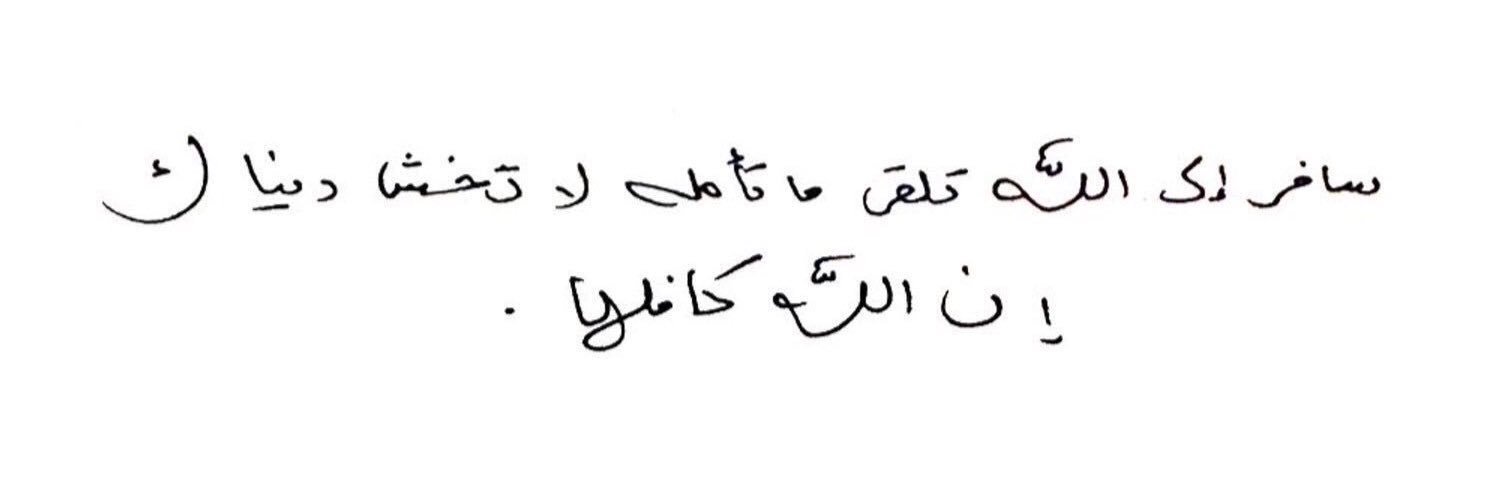 سافر إلى الله تلقى ما تأمله لا تخش دنياك
إن الله كافلها .